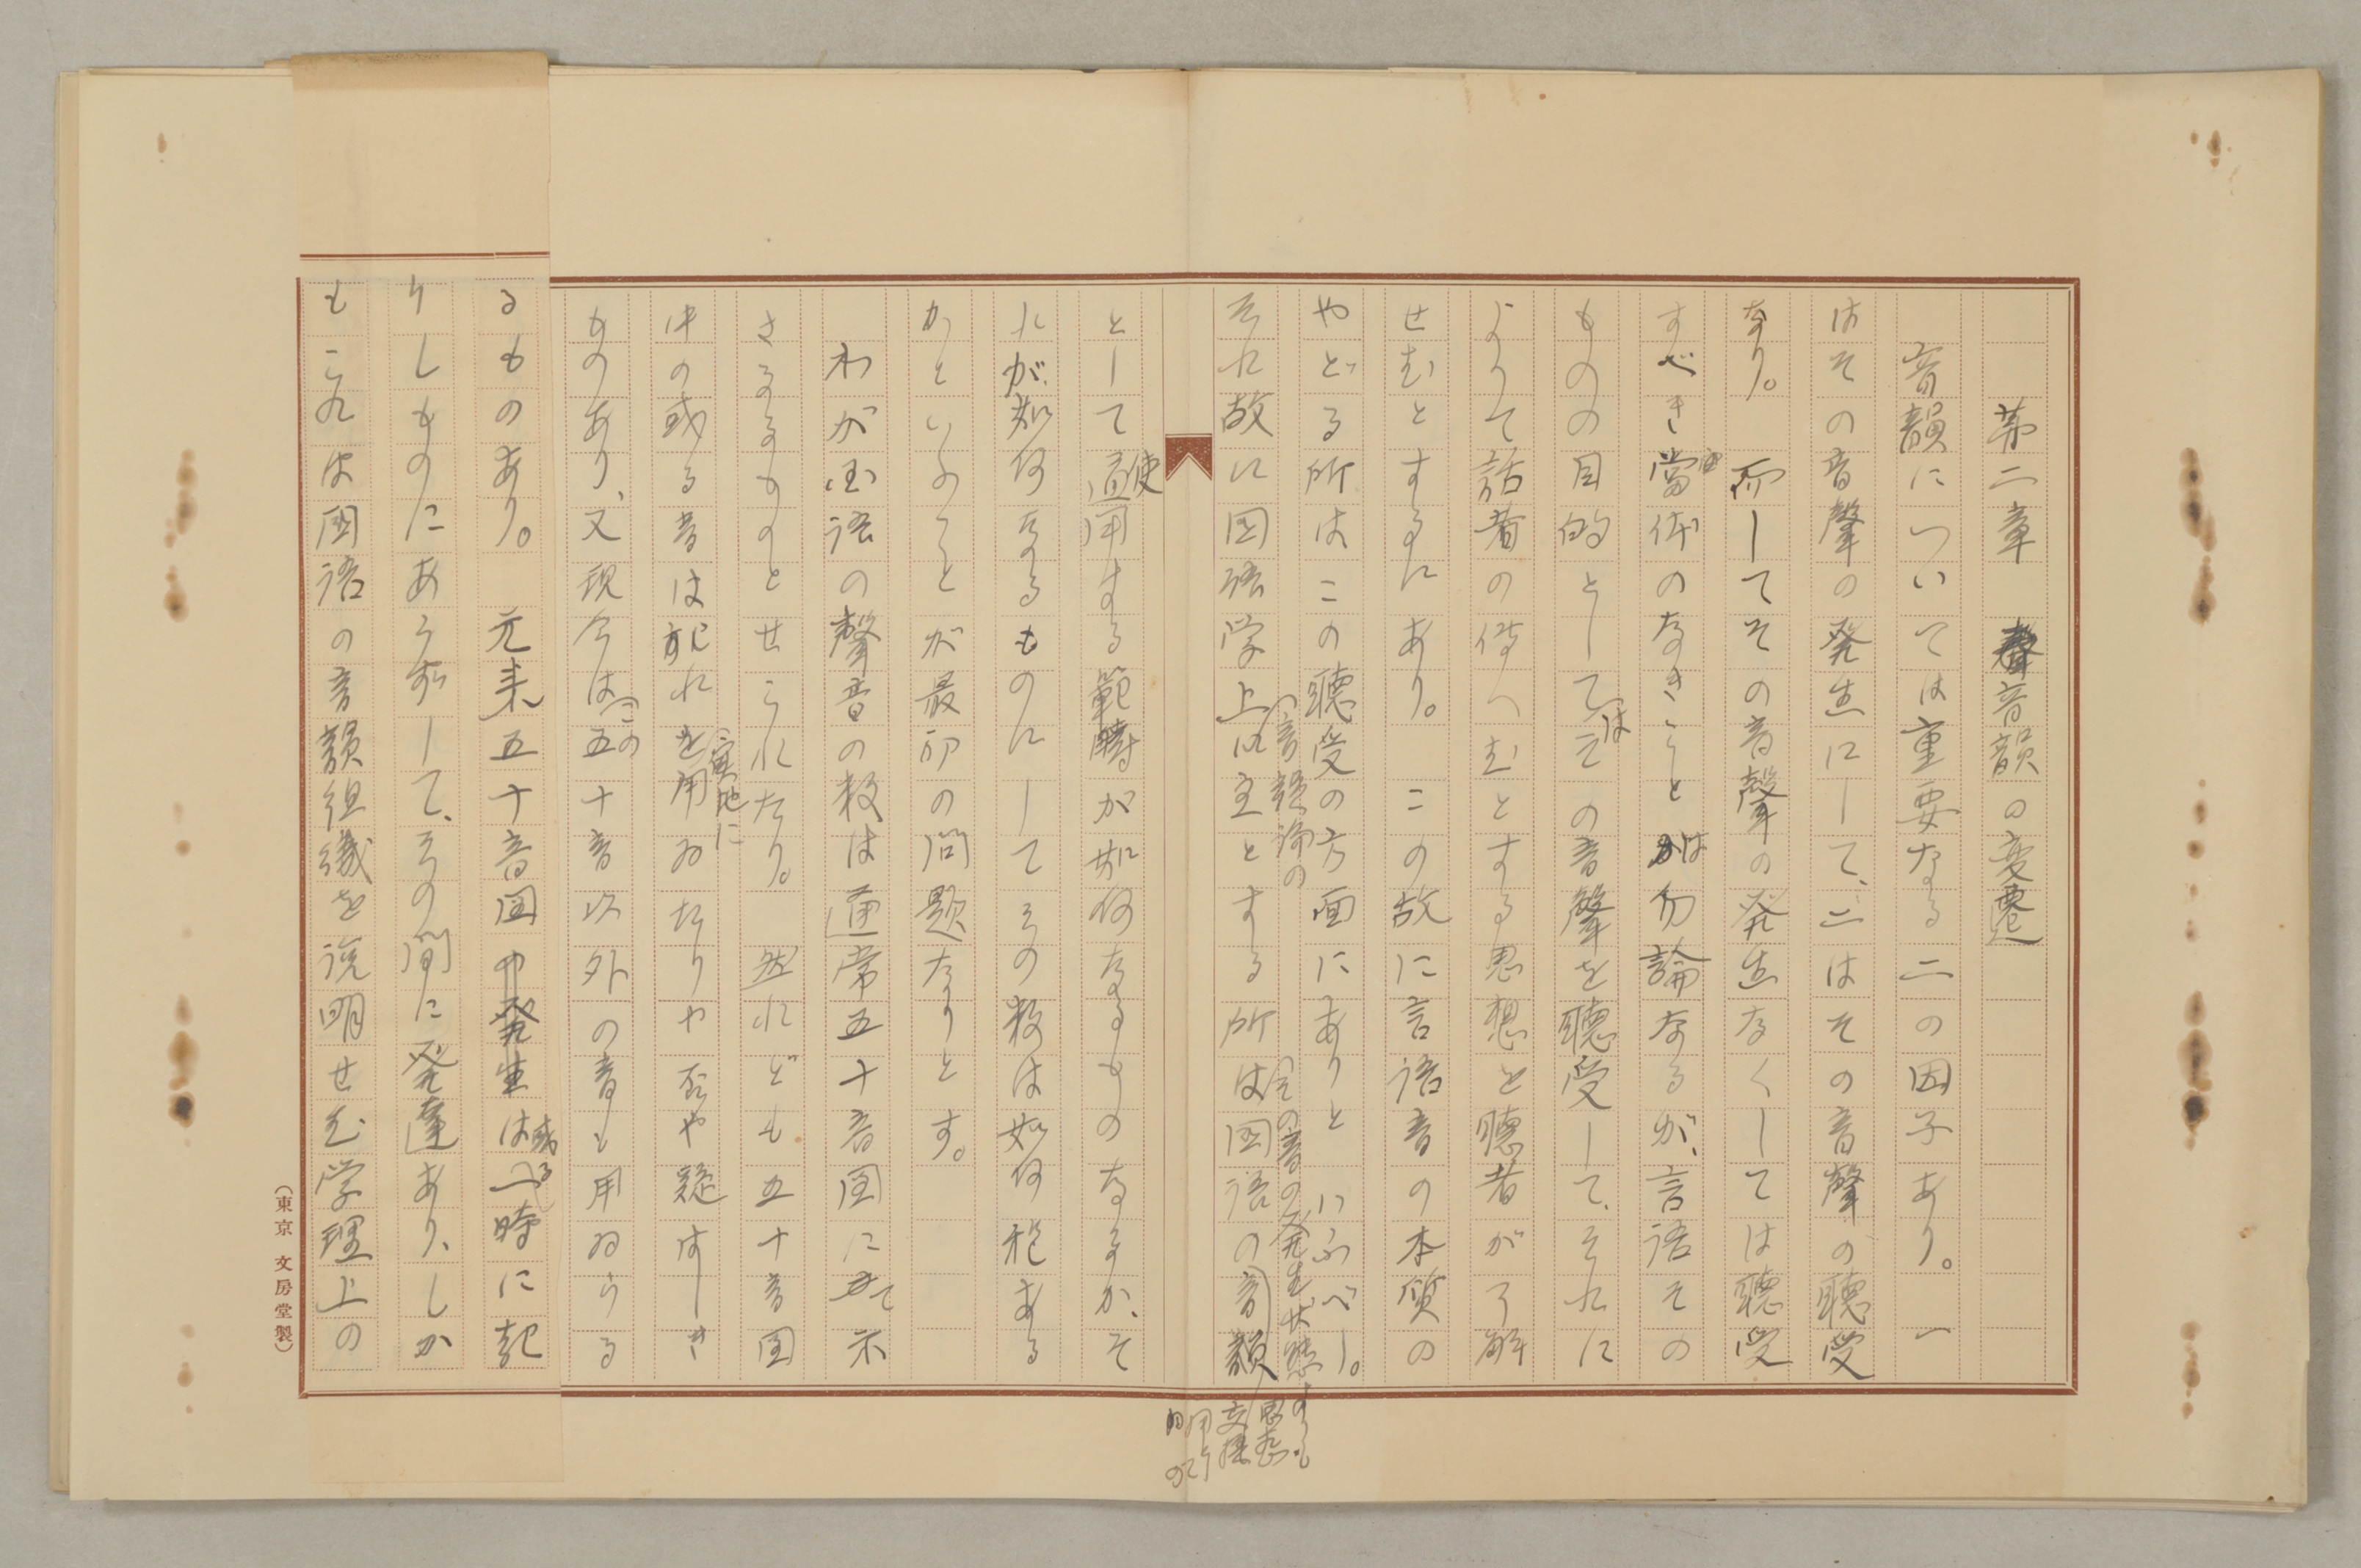 第二章　音韻の変遷
音韻については重要なる二の因子あり。一
はその音聲の発生にして、二はその音聲の聴受
なり。而してその音聲の発生なくしては聴受
すべき當体のなきことは勿論なるが、言語その
ものの目的としてはその音聲を聴受して、それに
よりて話者の傳へむとする思想を聴者が了解
せむとするにあり。この故に言語音の本質の
やどる所はこの聴受の方面にありといふべし。
（音韻論の
（その音の発生状態
するも
思想
交換
用
それ故に国語学上主とする所は国語の音韻
として使用する範疇が如何なるものなるか、そ
れが如何なるものにしてその数は如何程ある
かといふことが最初の問題なりとす。
わが国語の聲音の数は通常五十音図にて示
さるるものとせられたり。然れども五十音図
実地に
中の或る音は旣にれを用ゐたりや否や疑はしき
（この
ものあり、又現今は五十音以外の音も用ゐらる
るものあり。元来五十音図の発生は或る時に起
りしものにあらずして、その間に発達あり、しか
もこれは国語の音韻組織を説明せむ学理上の
（東京　文房堂製）